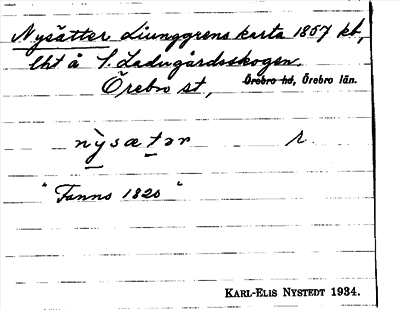 Nysätter Liunggrens karta 1857 kb,
lht å S. Ladugårdsskogen.
Örebro st, Örebro hd, Örebro län.
nỳsætər r.
"Fanns 1820"
KARL-ELIS NYSTEDT 1934.